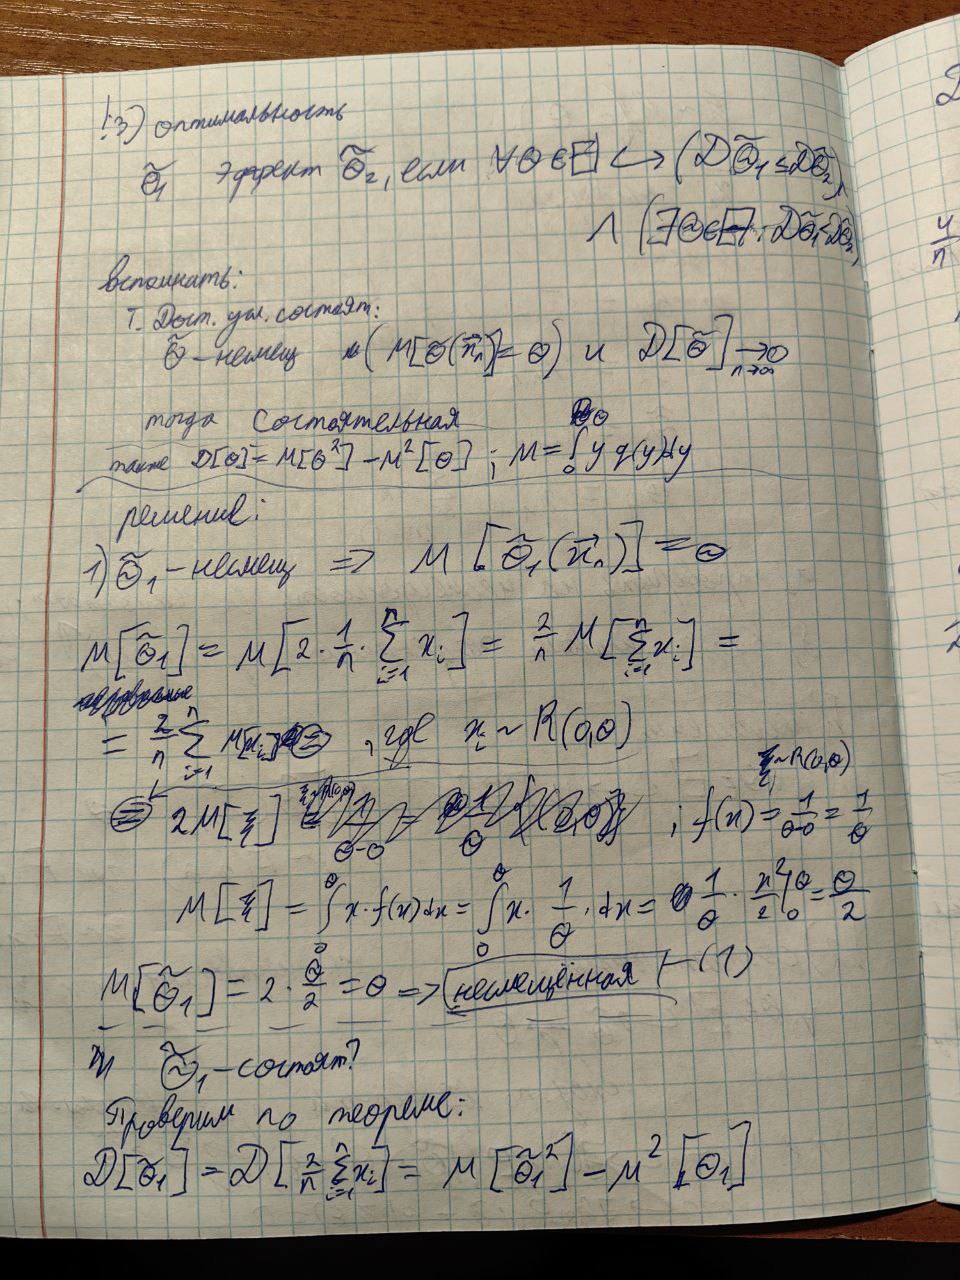 !3) оптимальность
θ̃₁ эффект θ̃₂, если ∀θ∈Θ ↪ (Dθ̃₁ ≤ Dθ̃₂) ∧
∧ (∃θ∈Θ : Dθ̃₁ < Dθ̃₂)
вспоминать:
Т. Дост. усл. состоят:
θ̃ - несмещ (M[θ(x⃗ₙ)] = θ) и D[θ̃] → 0
n→∞
тогда состоятельная
также D[θ] = M[θ²] - M²[θ] ; M = ∫₀^θ y q(y)dy
решение:
1) θ̃₁ - несмещ => M[θ̃₁(x⃗ₙ)] = θ
M[θ̃₁] = M[2 · 1/n · Σᵢ₌₁ⁿ xᵢ] = 2/n M[Σᵢ₌₁ⁿ xᵢ] =
= 2/n Σᵢ₌₁ⁿ M[xᵢ] ⊜ , где xᵢ ~ R(0,θ)
ξ ~ R(0,θ)
⊜ 2M[ξ] ; f(x) = 1/(θ-0) = 1/θ
M[ξ] = ∫₀^θ x · f(x)dx = ∫₀^θ x · 1/θ · dx = 1/θ · x²/2 |₀^θ = θ/2
M[θ̃₁] = 2 · θ/2 = θ => несмещённая - (1)
θ̃₁ - состоят?
Проверим по теореме:
D[θ̃₁] = D[2/n Σᵢ₌₁ⁿ xᵢ] = M[θ̃₁²] - M²[θ₁]